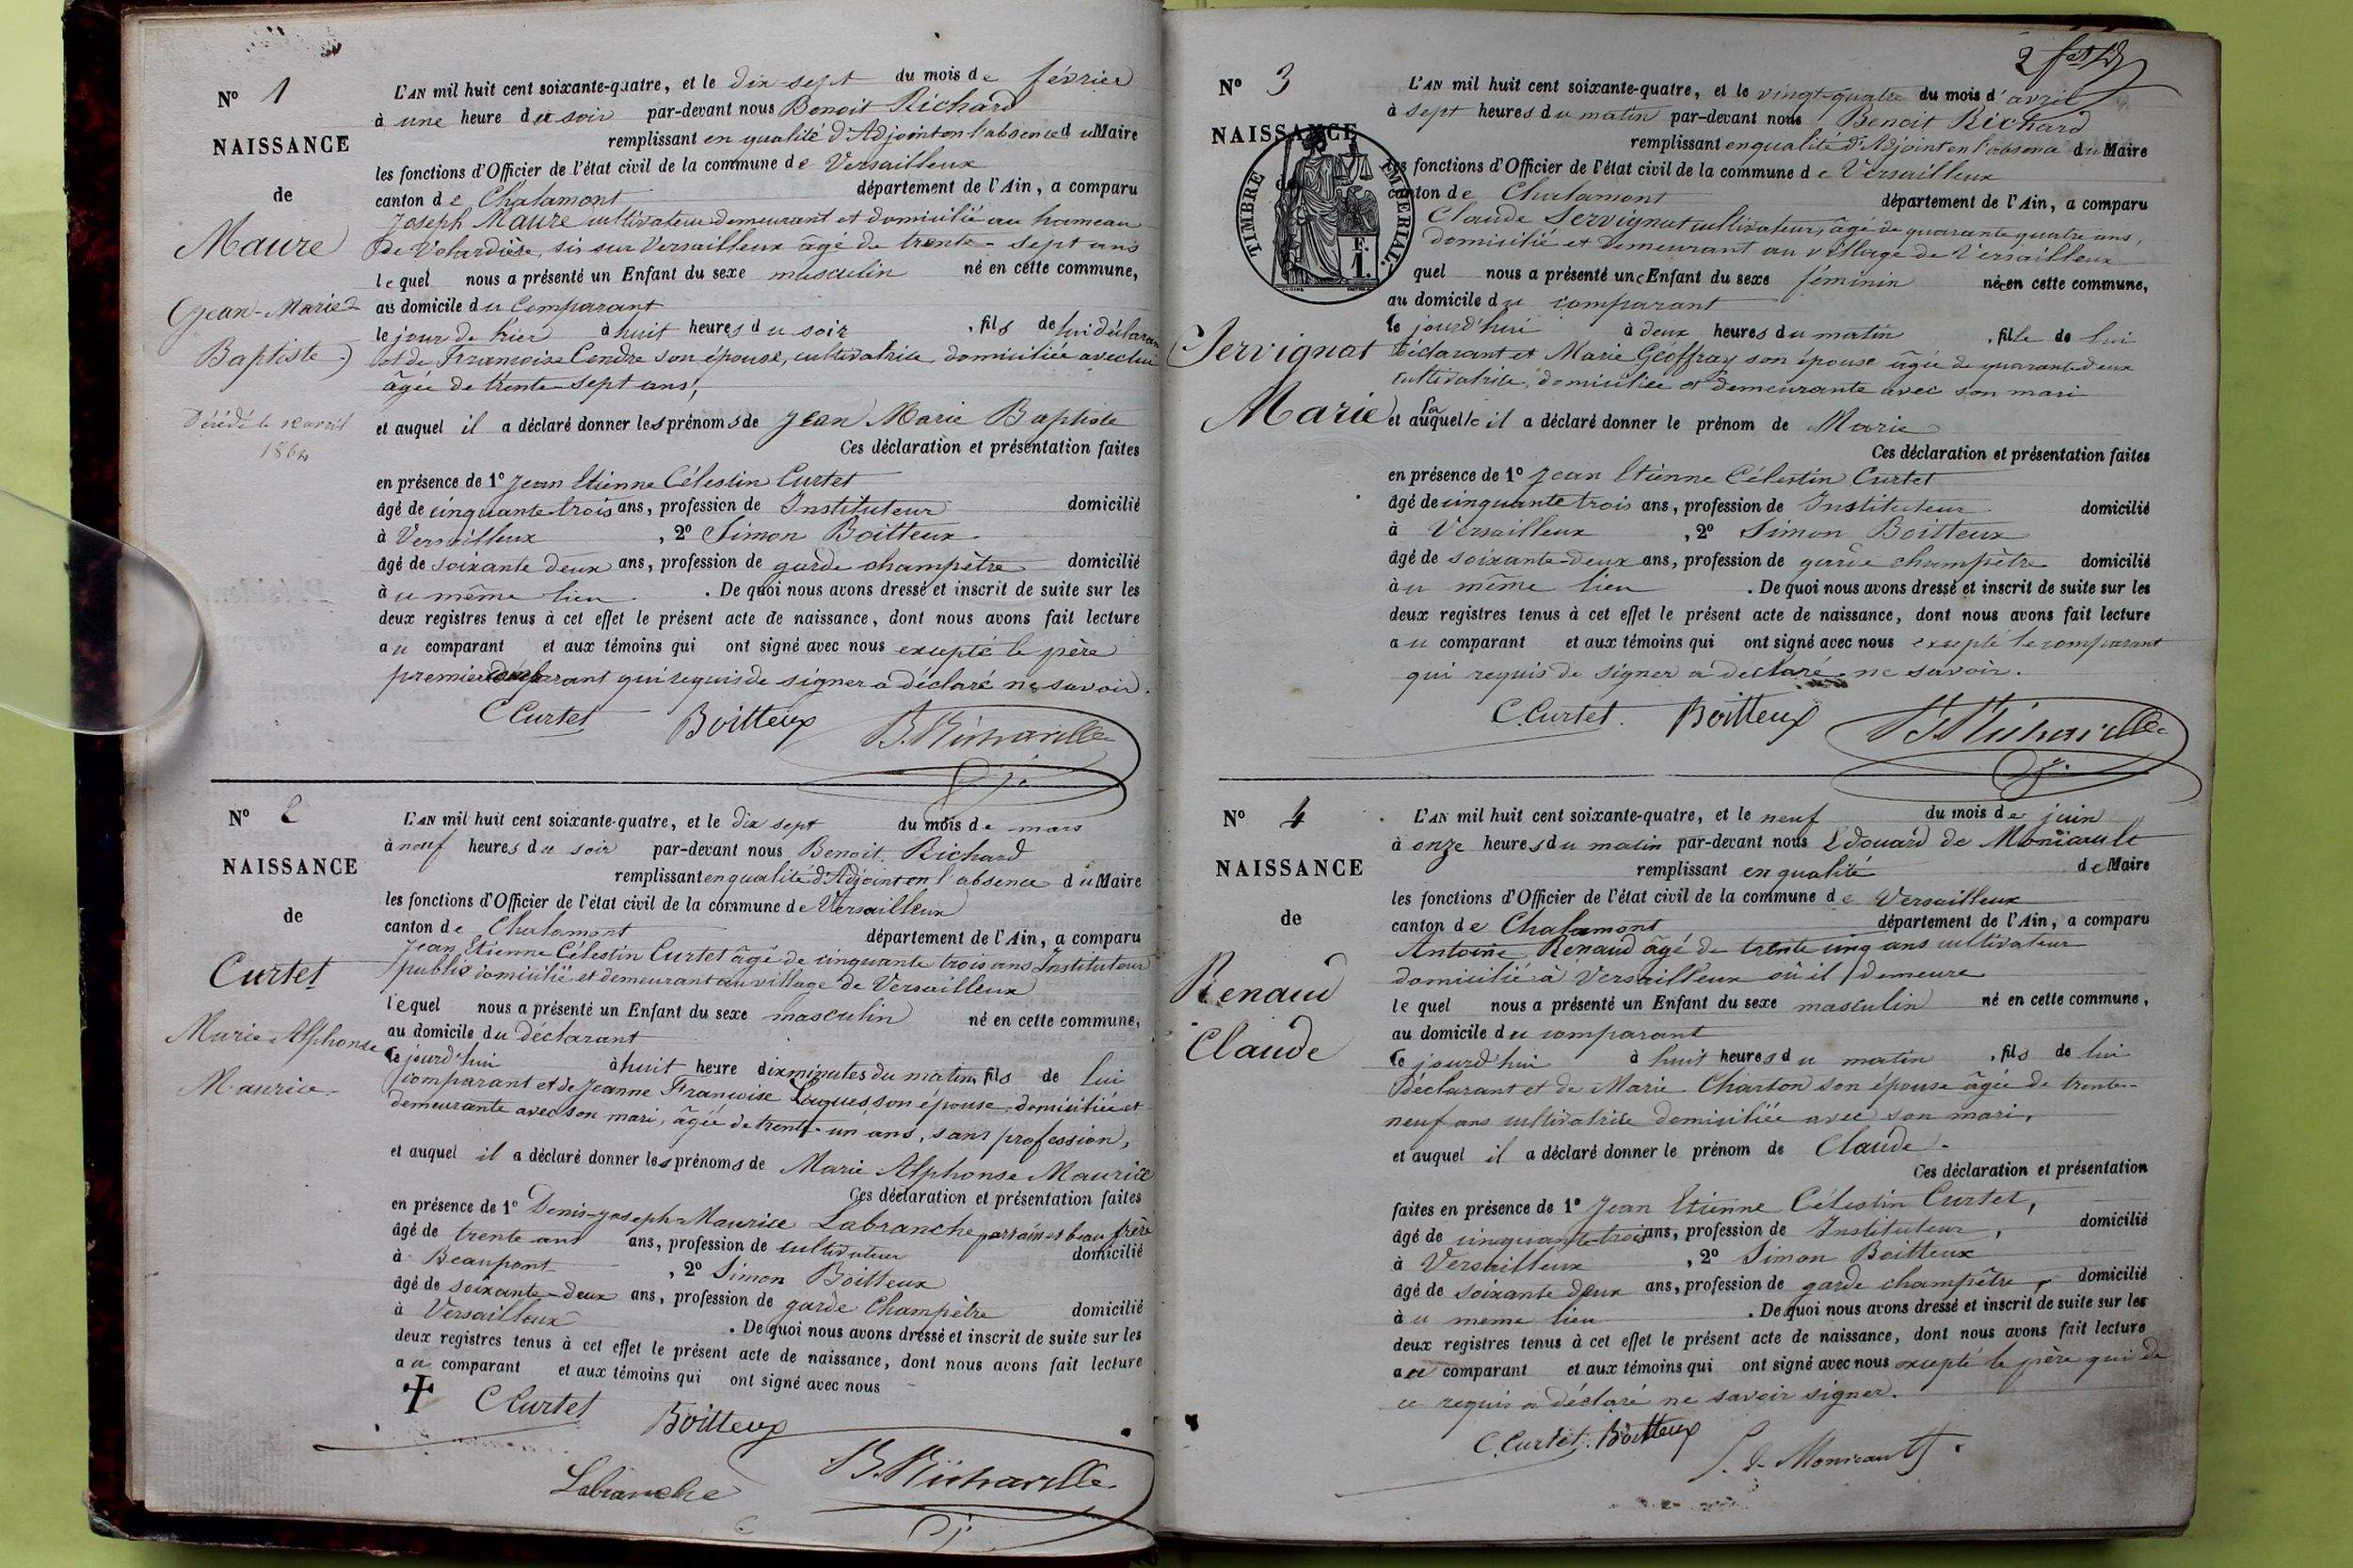 N° 1
NAISSANCE
de
Maure
(Jean-Marie
Baptiste)
Décédé le 12 avril
1864
L'AN mil huit cent soixante-quatre, et le dix sept du mois de février
à une heure du soir par-devant nous Benoit Richard
remplissant en qualité d'Adjoint en l'absence du Maire
les fonctions d'Officier de l'état civil de la commune de Versailleux
canton de Chalamont département de l'Ain, a comparu
Joseph Maure cultivateur demeurant et domicilié au hameau
de Volardière, sis sur Versailleux âgé de trente-sept ans
lequel nous a présenté un Enfant du sexe masculin né en cette commune,
au domicile du Comparant
le jour de hier à huit heures du soir, fils de lui déclarant
et de Françoise Cendre son épouse, cultivatrice domiciliée avec lui
âgée de trente-sept ans,
et auquel il a déclaré donner les prénoms de Jean Marie Baptiste
Ces déclaration et présentation faites
en présence de 1° Jean Etienne Célestin Curtet
âgé de cinquante trois ans, profession de Instituteur domicilié
à Versailleux, 2° Simon Boitteux
âgé de soixante deux ans, profession de garde champêtre domicilié
au même lieu. De quoi nous avons dressé et inscrit de suite sur les
deux registres tenus à cet effet le présent acte de naissance, dont nous avons fait lecture
au comparant et aux témoins qui ont signé avec nous excepté le père
premier comparant qui requis de signer a déclaré ne savoir.
C Curtet Boitteux B. Richard
N° 2
NAISSANCE
de
Curtet
Marie-Alphonse
Maurice
L'AN mil huit cent soixante-quatre, et le dix sept du mois de mars
à neuf heures du soir par-devant nous Benoit Richard
remplissant en qualité d'Adjoint en l'absence du Maire
les fonctions d'Officier de l'état civil de la commune de Versailleux
canton de Chalamont département de l'Ain, a comparu
Jean Etienne Célestin Curtet âgé de cinquante trois ans Instituteur
public domicilié et demeurant au village de Versailleux
lequel nous a présenté un Enfant du sexe masculin né en cette commune,
au domicile du déclarant
ce jourd'hui à huit heure dix minutes du matin, fils de lui
comparant et de Jeanne Françoise Laques, son épouse, domiciliée et
demeurante avec son mari, âgée de trente-un ans, sans profession,
et auquel il a déclaré donner les prénoms de Marie Alphonse Maurice
Ces déclaration et présentation faites
en présence de 1° Denis-Joseph-Maurice Labranche parrain et beau frère
âgé de trente ans ans, profession de cultivateur domicilié
à Beaupont, 2° Simon Boitteux
âgé de soixante-deux ans, profession de garde Champêtre domicilié
à Versailleux. De quoi nous avons dressé et inscrit de suite sur les
deux registres tenus à cet effet le présent acte de naissance, dont nous avons fait lecture
au comparant et aux témoins qui ont signé avec nous
C Curtet Boitteux
Labranche B. Richard
2
N° 3
NAISSANCE
de
TIMBRE IMPERIAL
F.
1.
Servignat
Marie
L'AN mil huit cent soixante-quatre, et le vingt-quatre du mois d'avril
à sept heures du matin par-devant nous Benoit Richard
remplissant en qualité d'Adjoint en l'absence du Maire
les fonctions d'Officier de l'état civil de la commune de Versailleux
canton de Chalamont département de l'Ain, a comparu
Claude Servignat cultivateur, âgé de quarante quatre ans,
domicilié et demeurant au village de Versailleux
quel nous a présenté une Enfant du sexe féminin née en cette commune,
au domicile du comparant
ce jourd'hui à deux heures du matin, fille de lui
déclarant et Marie Géoffray son épouse âgée de quarante deux
cultivatrice, domiciliée et demeurante avec son mari
et a laquelle il a déclaré donner le prénom de Marie
Ces déclaration et présentation faites
en présence de 1° Jean Etienne Célestin Curtet
âgé de cinquante trois ans, profession de Instituteur domicilié
à Versailleux, 2° Simon Boitteux
âgé de soixante-deux ans, profession de garde champêtre domicilié
au même lieu. De quoi nous avons dressé et inscrit de suite sur les
deux registres tenus à cet effet le présent acte de naissance, dont nous avons fait lecture
au comparant et aux témoins qui ont signé avec nous excepté le comparant
qui requis de signer a déclaré ne savoir.
C. Curtet. Boitteux B. Richard
N° 4
NAISSANCE
de
Renaud
Claude
L'AN mil huit cent soixante-quatre, et le neuf du mois de juin
à onze heures du matin par-devant nous Edouard de Monicault
remplissant en qualité de Maire
les fonctions d'Officier de l'état civil de la commune de Versailleux
canton de Chalamont département de l'Ain, a comparu
Antoine Renaud âgé de trente cinq ans cultivateur
domicilié à Versailleux où il demeure
lequel nous a présenté un Enfant du sexe masculin né en cette commune,
au domicile du comparant
ce jourd'hui à huit heures du matin, fils de lui
déclarant et de Marie Charton son épouse âgée de trente-
neuf ans cultivatrice domiciliée avec son mari,
et auquel il a déclaré donner le prénom de Claude.
Ces déclaration et présentation
faites en présence de 1° Jean Etienne Célestin Curtet,
âgé de cinquante-trois ans, profession de Instituteur, domicilié
à Versailleux, 2° Simon Boitteux
âgé de soixante deux ans, profession de garde champêtre, domicilié
au meme lieu. De quoi nous avons dressé et inscrit de suite sur les
deux registres tenus à cet effet le présent acte de naissance, dont nous avons fait lecture
au comparant et aux témoins qui ont signé avec nous excepté le père qui de
ce requis a déclaré ne savoir signer.
C. Curtet. Boitteux
E. de Monicault